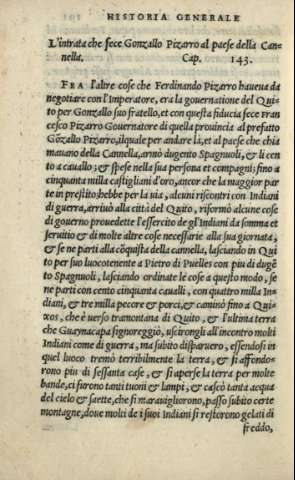 HISTORIA GENERALE
L'intrata che fece Gonzallo Pizarro al paese della Can-
nella. Cap. 143.
FRA l'altre cose che Ferdinando Pizarro haueua da
negotiare con l'Imperatore, era la gouernatione del Qui
to per Gonzallo suo fratello, et con questa fiducia fece Fran
cesco Pizarro Gouernatore di quella prouincia al prefatto
Gōzallo Pizarro, ilquale per andare là, et al paese che chia
mauano della Cannella, armò dugento Spagnuoli, & li cen
to a cauallo; & spese nella sua persona et compagni; fino a
cinquanta milla castigliani d'oro, ancor che la maggior par
te in prestito; hebbe per la uia, alcuni riscontri con Indiani
di guerra, arriuò alla città del Quito, riformò alcune cose
di gouerno prouedette l'essercito de gl'Indiani da somma et
seruitio & di molte altre cose necessarie alla sua giornata,
& se ne partì alla cōquista della cannella, lasciando in Qui
to per suo luocotenente a Pietro di Puelles con piu di dugē
to Spagnuoli, lasciando ordinate le cose a questo modo, se
ne partì con cento cinquanta caualli, con quattro milla In-
diani, & tre milla pecore & porci, & caminò fino a Qui-
xos, che è uerso tramontana di Quito, & l'ultima terra
che Guaynacapa signoreggiò, uscirongli all'incontro molti
Indiani come di guerra, ma subito disparuero, essendosi in
quel luoco tremò terribilmente la terra, & si affondo-
rono piu di sessanta case, & si aperse la terra per molte
bande, ci furono tanti tuoni & lampi, & cascò tanta acqua
del cielo & saette, che si marauigliorono, passò subito certe
montagne, doue molti de i suoi Indiani si restorono gelati di
freddo,